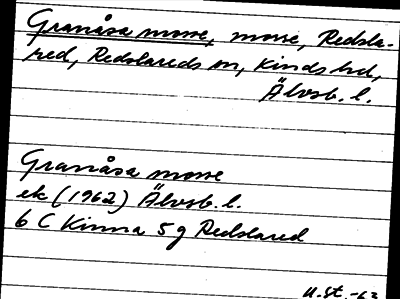 Granåsa mosse, mosse, Redsla-
red, Redslareds sn, Kinds hd,
Älvsb. l.
Granåsa mosse
ek (1962) Älvsb. l.
6 C Kinna 5 g Redslared
u.st. -63